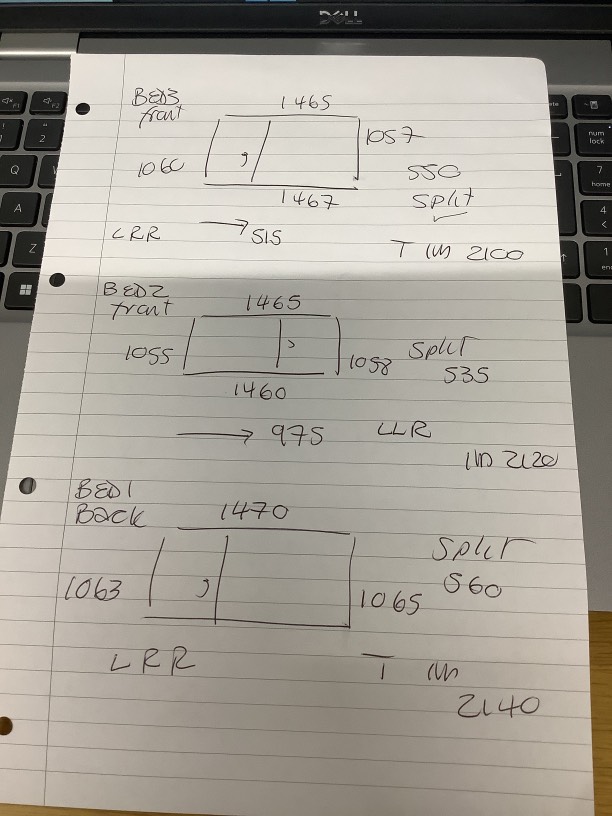 DELL
BED3
front
1465
1057
1060
550
split
1467
LRR → 515
T in 2100
BED2
front
1465
1055
1058
split
535
1460
→ 975
LLR
in 2120
BED1
Back
1470
split
560
1063
1065
LRR
T in
2140
Q
A
Z
num
lock
7
home
4
1